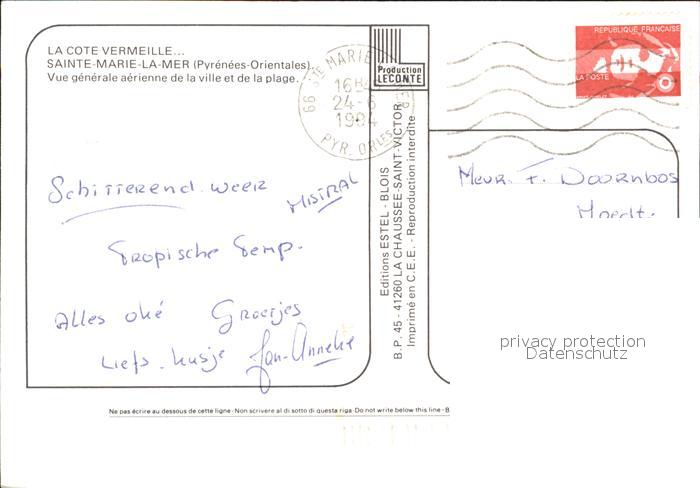 LA COTE VERMEILLE...
SAINTE-MARIE-LA-MER (Pyrénées-Orientales)
Vue générale aérienne de la ville et de la plage.
Production
LECONTE
66 STE MARIE
16H
24-6
1994
PYR. ORLES
REPUBLIQUE FRANÇAISE
LA POSTE
Schitterend weer
MISTRAL
Tropische Temp.
Alles oké Groetjes
Liefs. kusje Jan-Anneke
Editions ESTEL - BLOIS
B.P. 45 - 41260 LA CHAUSSEE-SAINT-VICTOR
Imprimé en C.E.E. - Reproduction interdite
Mevr. F. Doornbos
privacy protection
Datenschutz
Ne pas écrire au dessous de cette ligne - Non scrivere al di sotto di questa riga - Do not write below this line - B